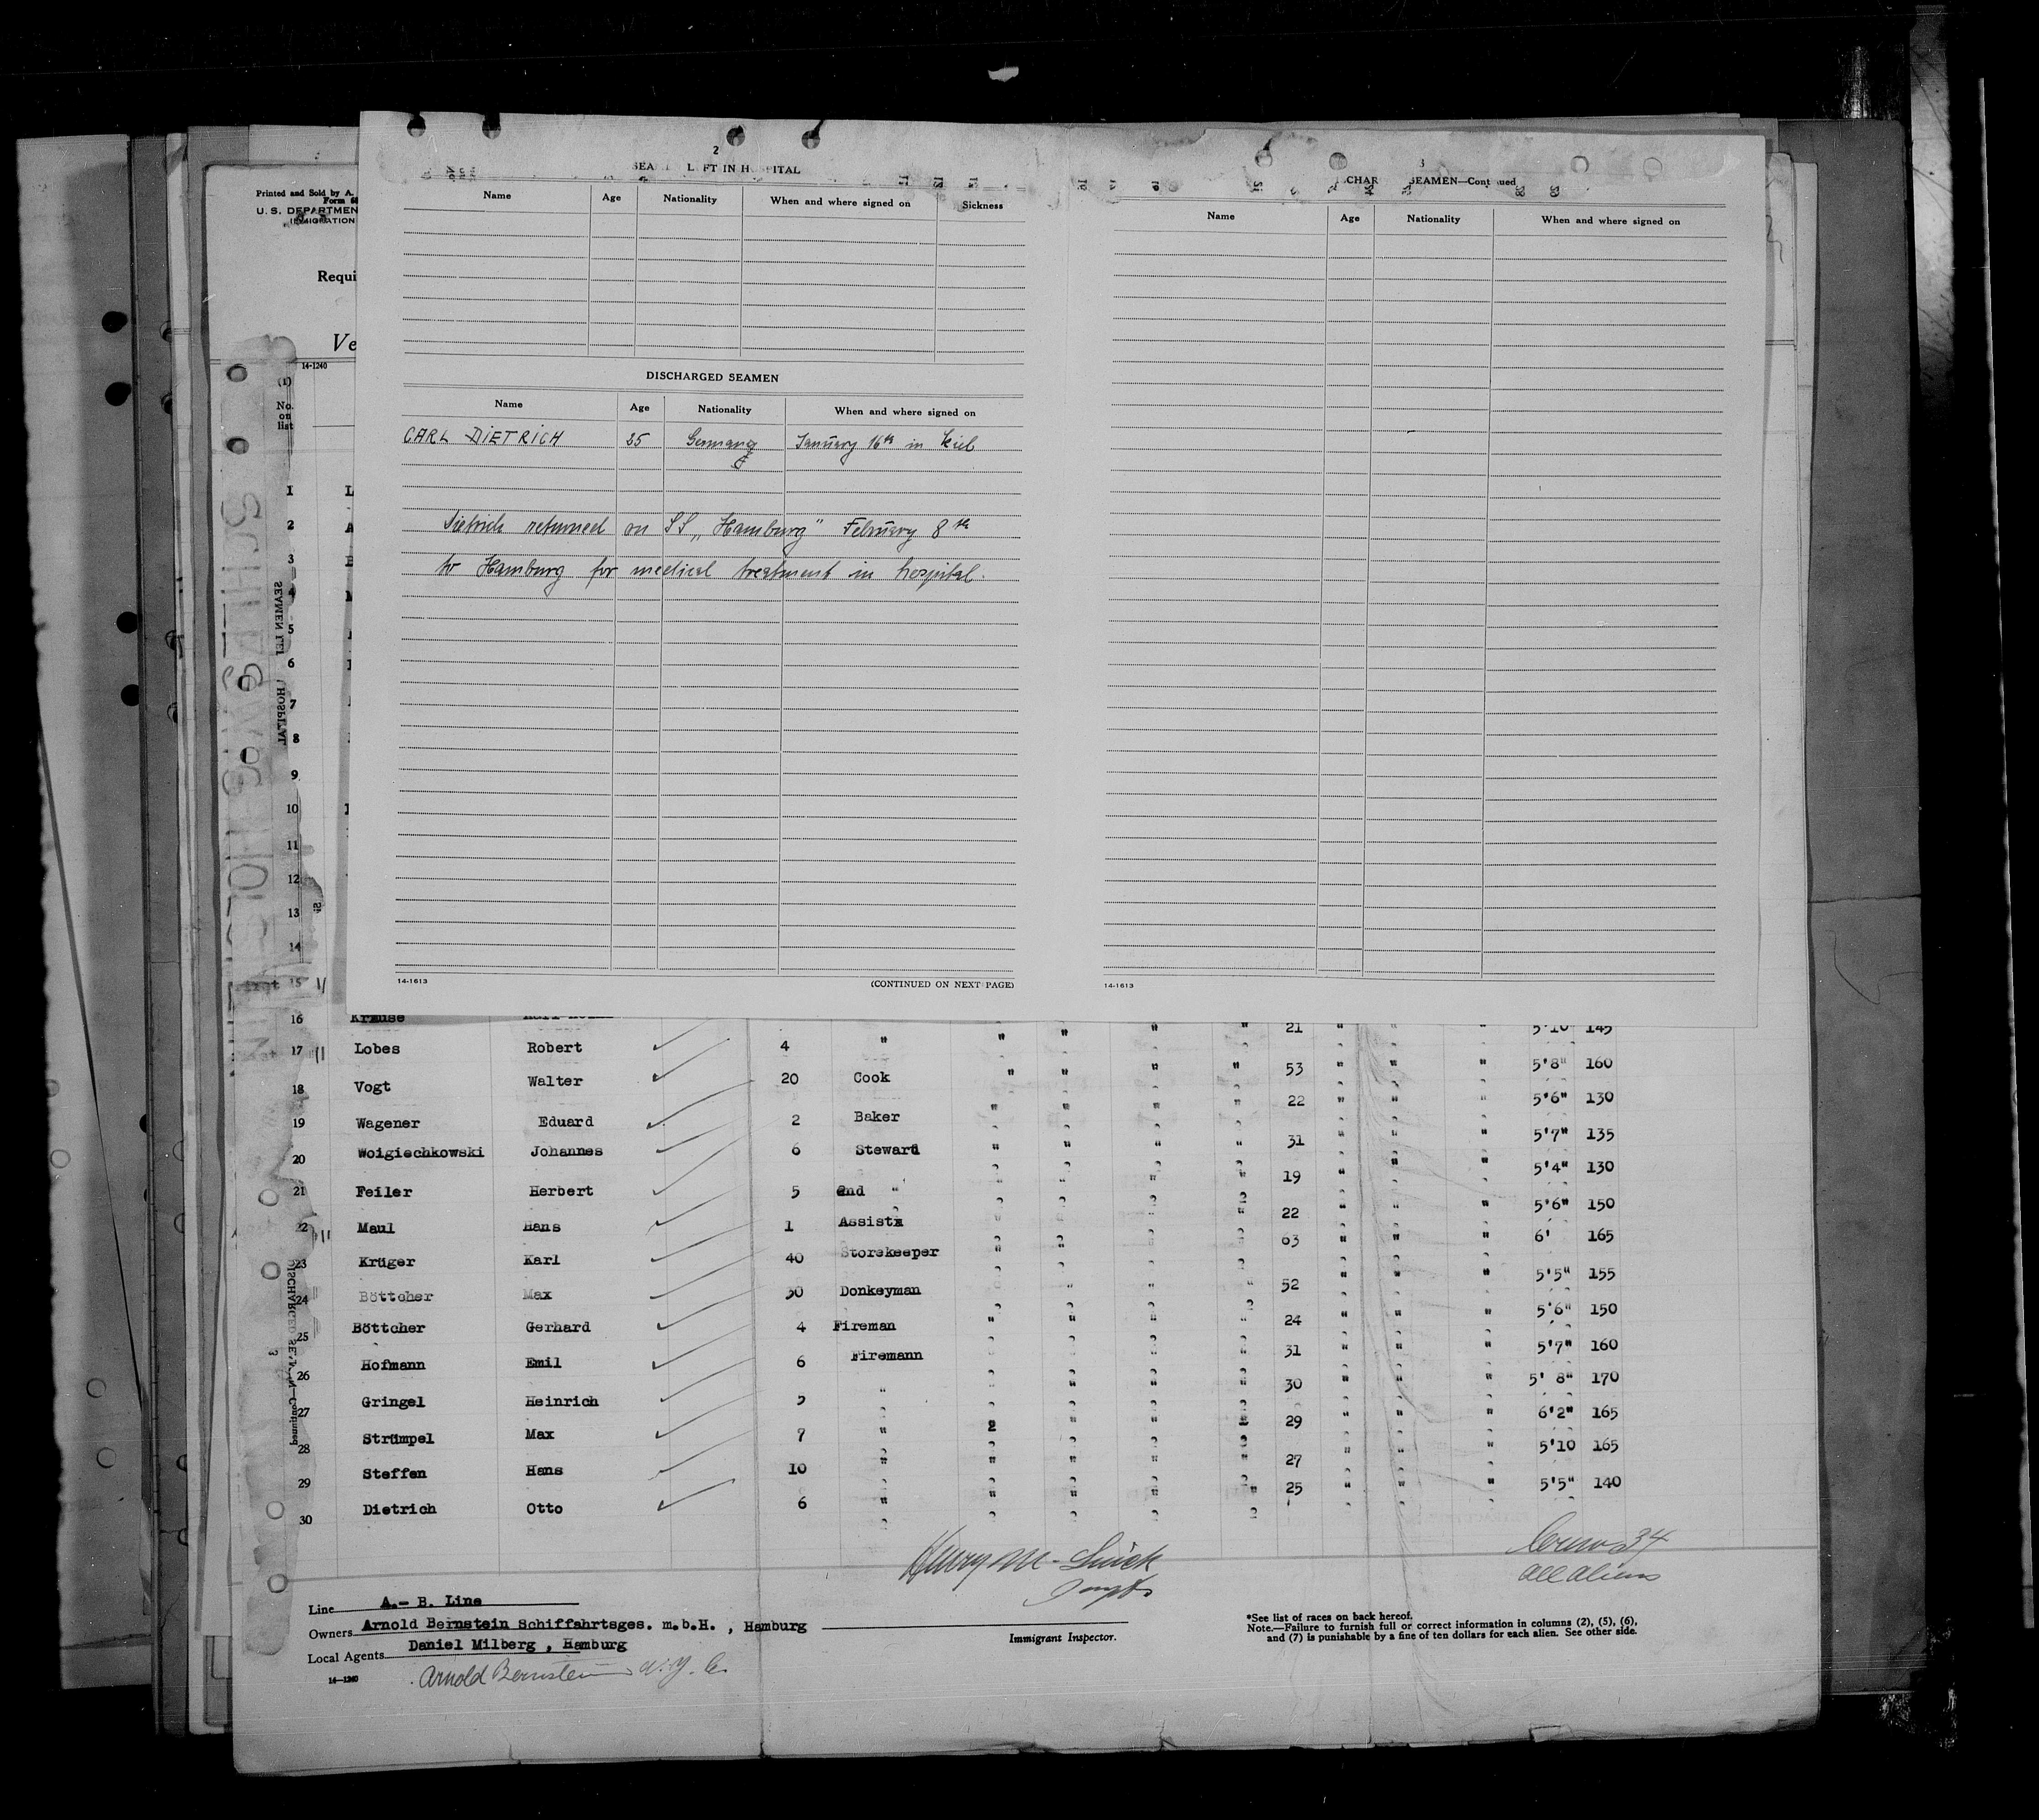 2
FT IN HOSPITAL
Name Age Nationality When and where signed on Sickness
DISCHARGED SEAMEN
Name Age Nationality When and where signed on
CARL DIETRICH 25 Germany January 16th in Kiel
Dietrich returned on SS „Hamburg" February 8th
to Hamburg for medical treatment in hospital.
14-1613 (CONTINUED ON NEXT PAGE)
3
SEAMEN—Continued
Name Age Nationality When and where signed on
14-1613
Printed and Sold by A.
Form
U.S. DEPARTMEN
IMMIGRATION
Requi
Ve
14-1240
(1)
No. on list
1 L
2 A
3 B
4
5
6
7
8
9
10
11
12
13
14
15
16 Krause " " " " 21 " " " 5'10 145
17 Lobes Robert 4 " " " " " 53 " " " 5'8" 160
18 Vogt Walter 20 Cook " " " " 22 " " " 5'6" 130
19 Wagener Eduard 2 Baker " " " " 31 " " " 5'7" 135
20 Woigiechkowski Johannes 6 Steward " " " " 19 " " " 5'4" 130
21 Feiler Herbert 5 2nd " " " " " 22 " " " 5'6" 150
22 Maul Hans 1 Assist " " " " 63 " " " 6' 165
23 Krüger Karl 40 Storekeeper " " " " 52 " " " 5'5" 155
24 Böttcher Max 30 Donkeyman " " " " 24 " " " 5'6" 150
25 Böttcher Gerhard 4 Fireman " " " " 31 " " " 5'7" 160
26 Hofmann Emil 6 Firemann " " " " 30 " " " 5' 8" 170
27 Gringel Heinrich 5 " " " " " 29 " " " 6'2" 165
28 Strümpel Max 7 " " " " " 27 " " " 5'10 165
29 Steffen Hans 10 " " " " " 25 " " " 5'5" 140
30 Dietrich Otto 6 " " " " "
SEAMEN LEFT HOSPITAL
DISCHARGED SEAMEN—Continued
Henry M.
34
all aliens
Line A.- B. Line
Owners Arnold Bernstein Schiffahrtsges. m.b.H. , Hamburg
Local Agents Daniel Milberg , Hamburg
Arnold Bernstein N.Y. C.
14—1240
Immigrant Inspector.
*See list of races on back hereof.
Note.—Failure to furnish full or correct information in columns (2), (5), (6),
and (7) is punishable by a fine of ten dollars for each alien. See other side.